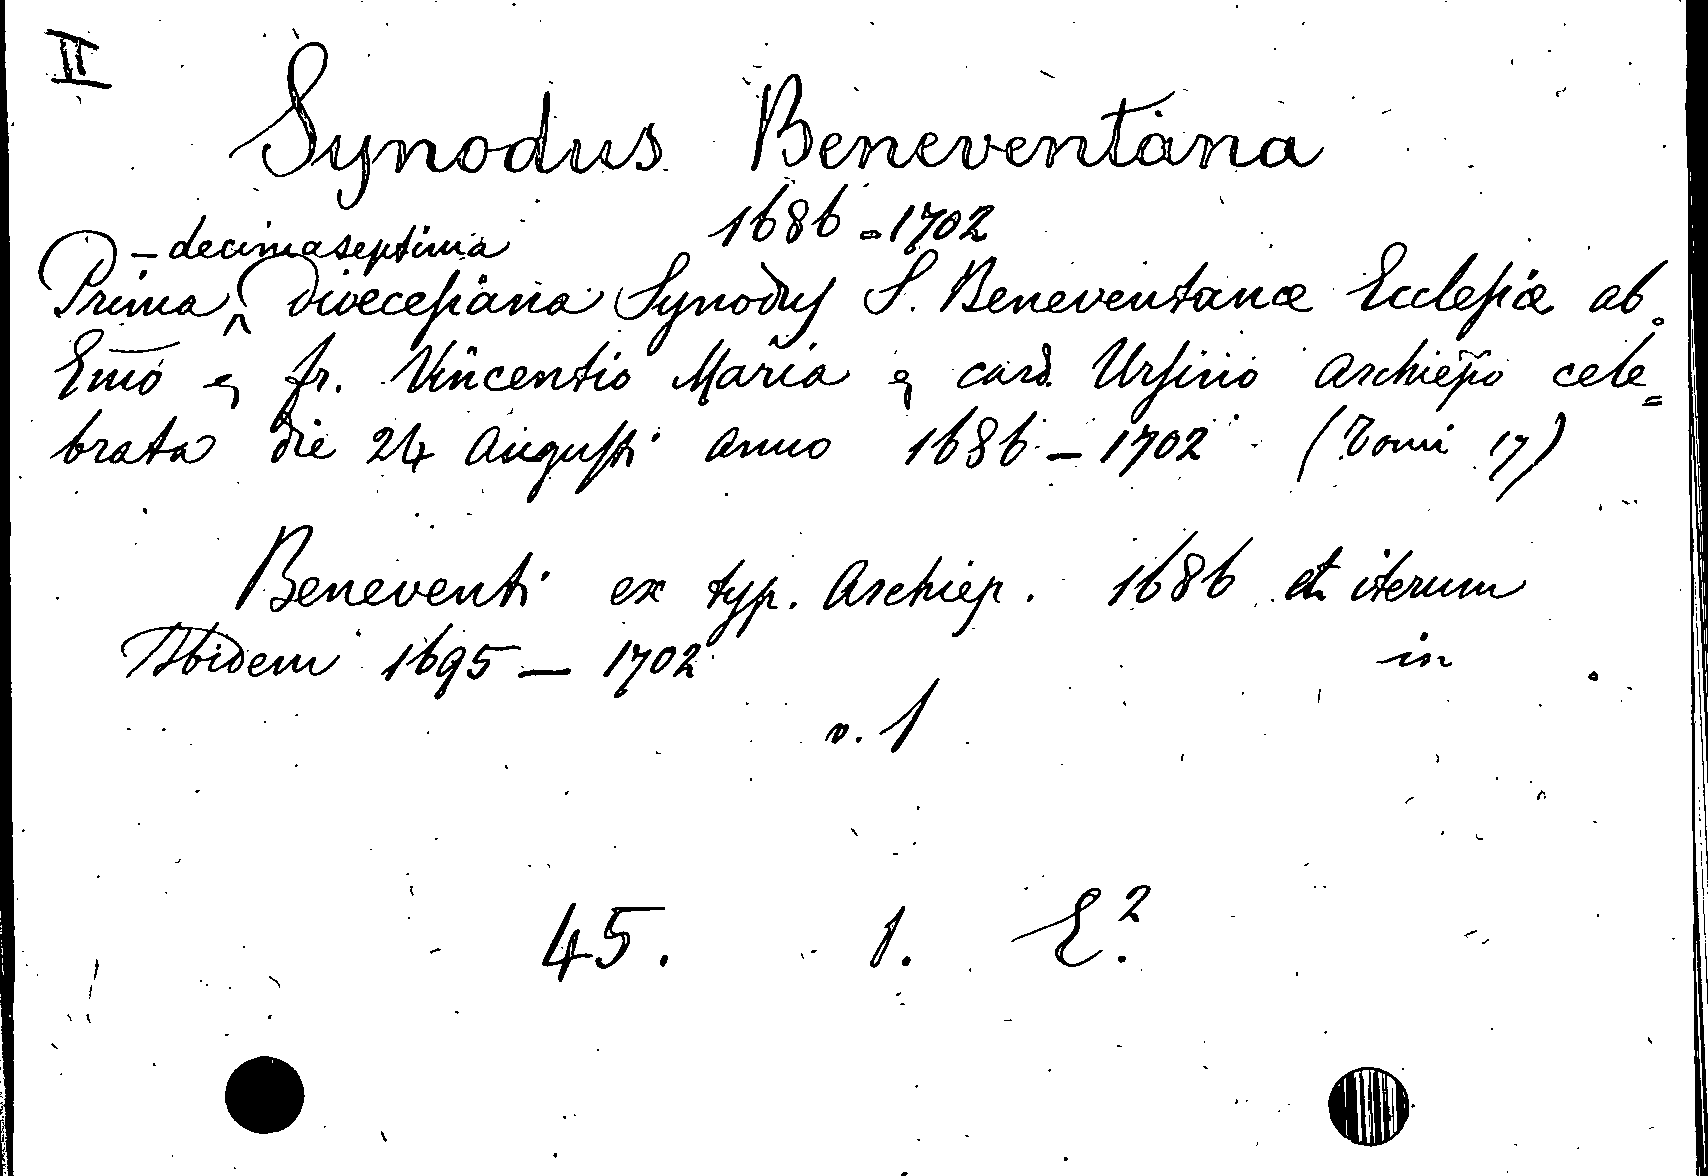 II
Synodus Beneventana
1686 - 1702
– decimaseptima
Prima ^ Diœcesiana Synodus S. Beneventanæ Ecclesiæ ab
Emo fr. Vincentio Maria card. Ursino Archiepo cele=
brata die 24 Augusti anno 1686 – 1702 (Tomi 17)
Beneventi ex typ. Archiep. 1686 et iterum
Ibidem 1695 – 1702 in
v. 1
45. 1. E².